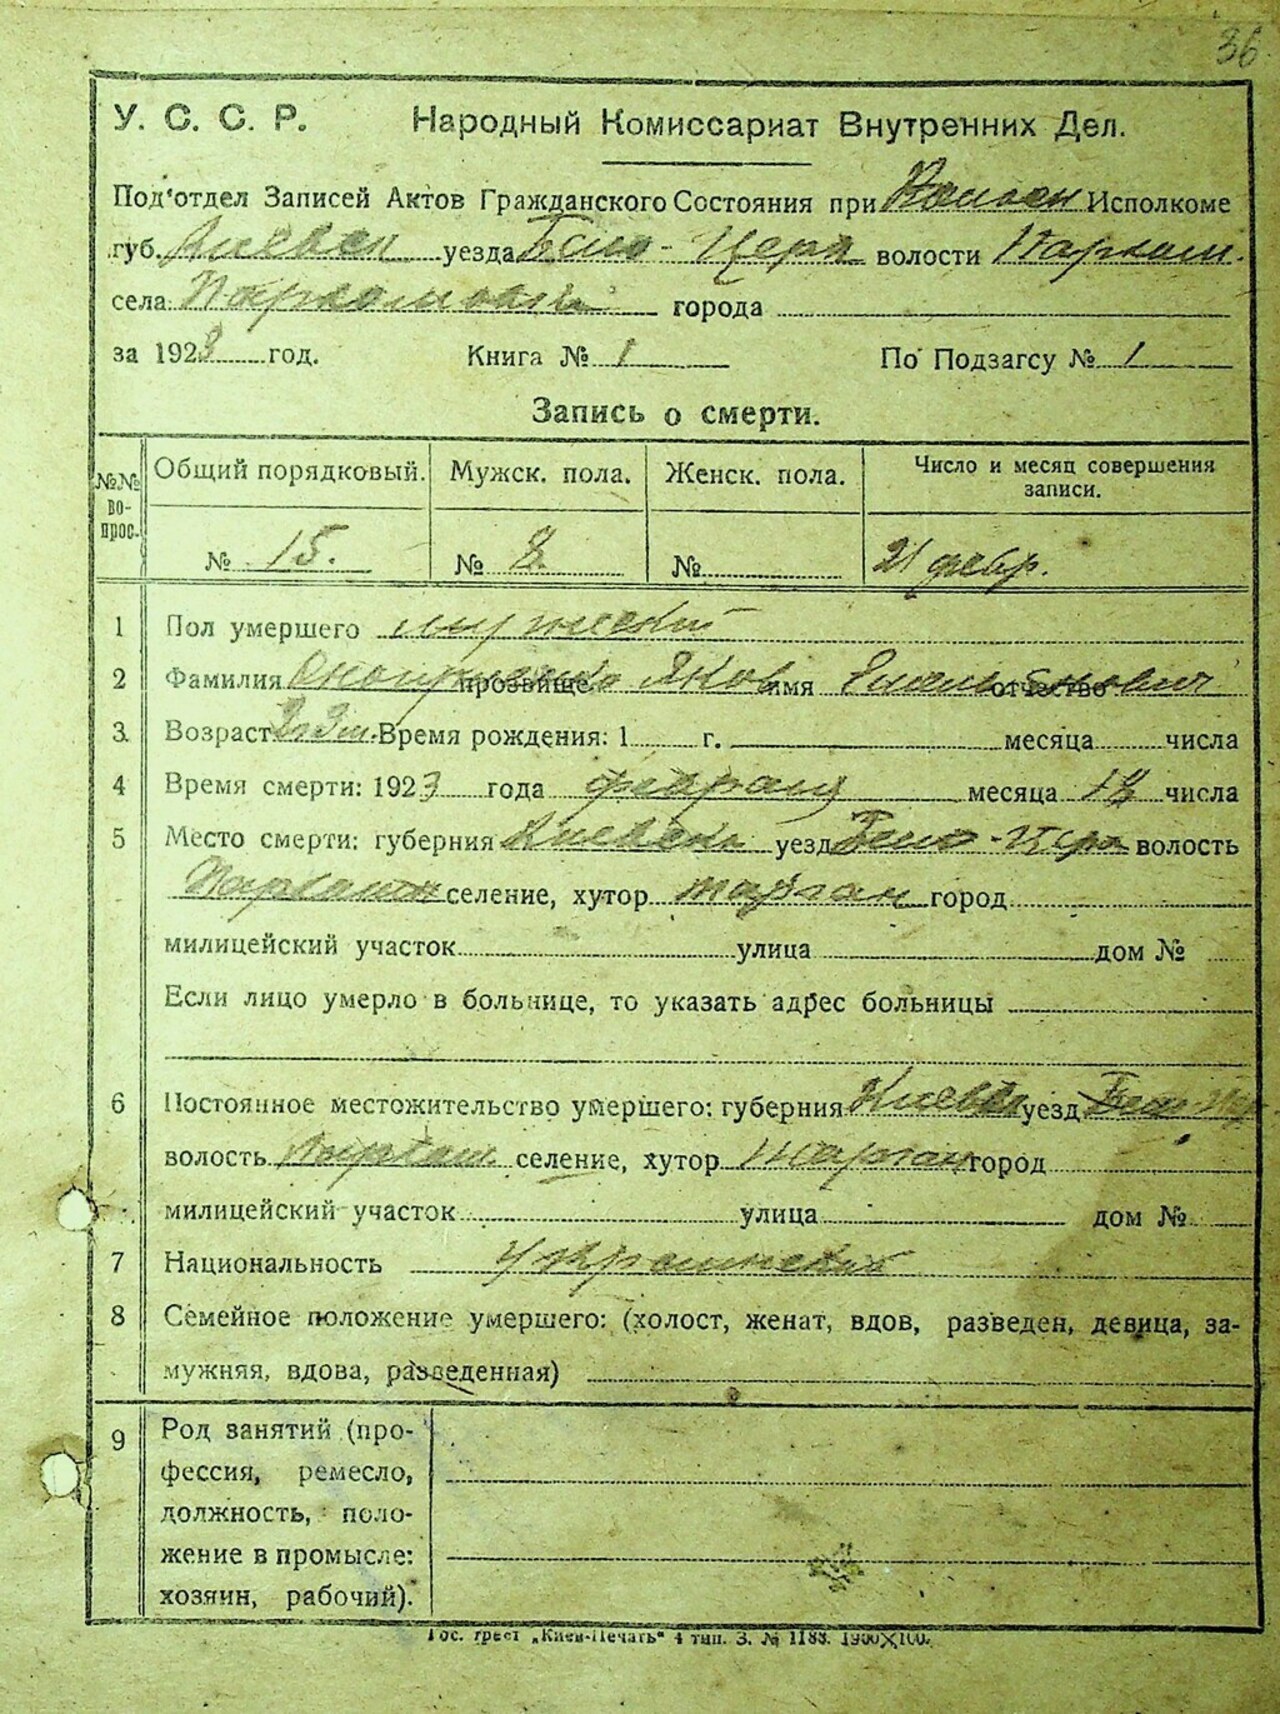 36
У. С. С. Р. Народный Комиссариат Внутренних Дел.
Под'отдел Записей Актов Гражданского Состояния при Исполкоме
губ. Киевск уезда Бело-Церк волости Пархом.
села города
за 1923 год. Книга № 1 По Подзагсу № 1
Запись о смерти.
№№ вопрос. Общий порядковый. Мужск. пола. Женск. пола. Число и месяц совершения записи.
№ 15. № 8. № 21 февр.
1 Пол умершего мужеский
2 Фамилия прозвище Яков имя Емельянович отчество
3 Возраст Время рождения: 1 г. месяца числа
4 Время смерти: 1923 года февраля месяца числа
5 Место смерти: губерния Киевск уезд Бело-Церк волость
Пархом селение, хутор город
милицейский участок улица дом №
Если лицо умерло в больнице, то указать адрес больницы
6 Постоянное местожительство умершего: губерния Киевск уезд Бело-Ц
волость Пархом селение, хутор город
милицейский участок улица дом №
7 Национальность
8 Семейное положение умершего: (холост, женат, вдов, разведен, девица, за-
мужняя, вдова, разведенная)
9 Род занятий (про-
фессия, ремесло,
должность, поло-
жение в промысле:
хозяин, рабочий).
Гос. трест „Киев-Печать" 4 тип. З. № 1188. 1900×100.